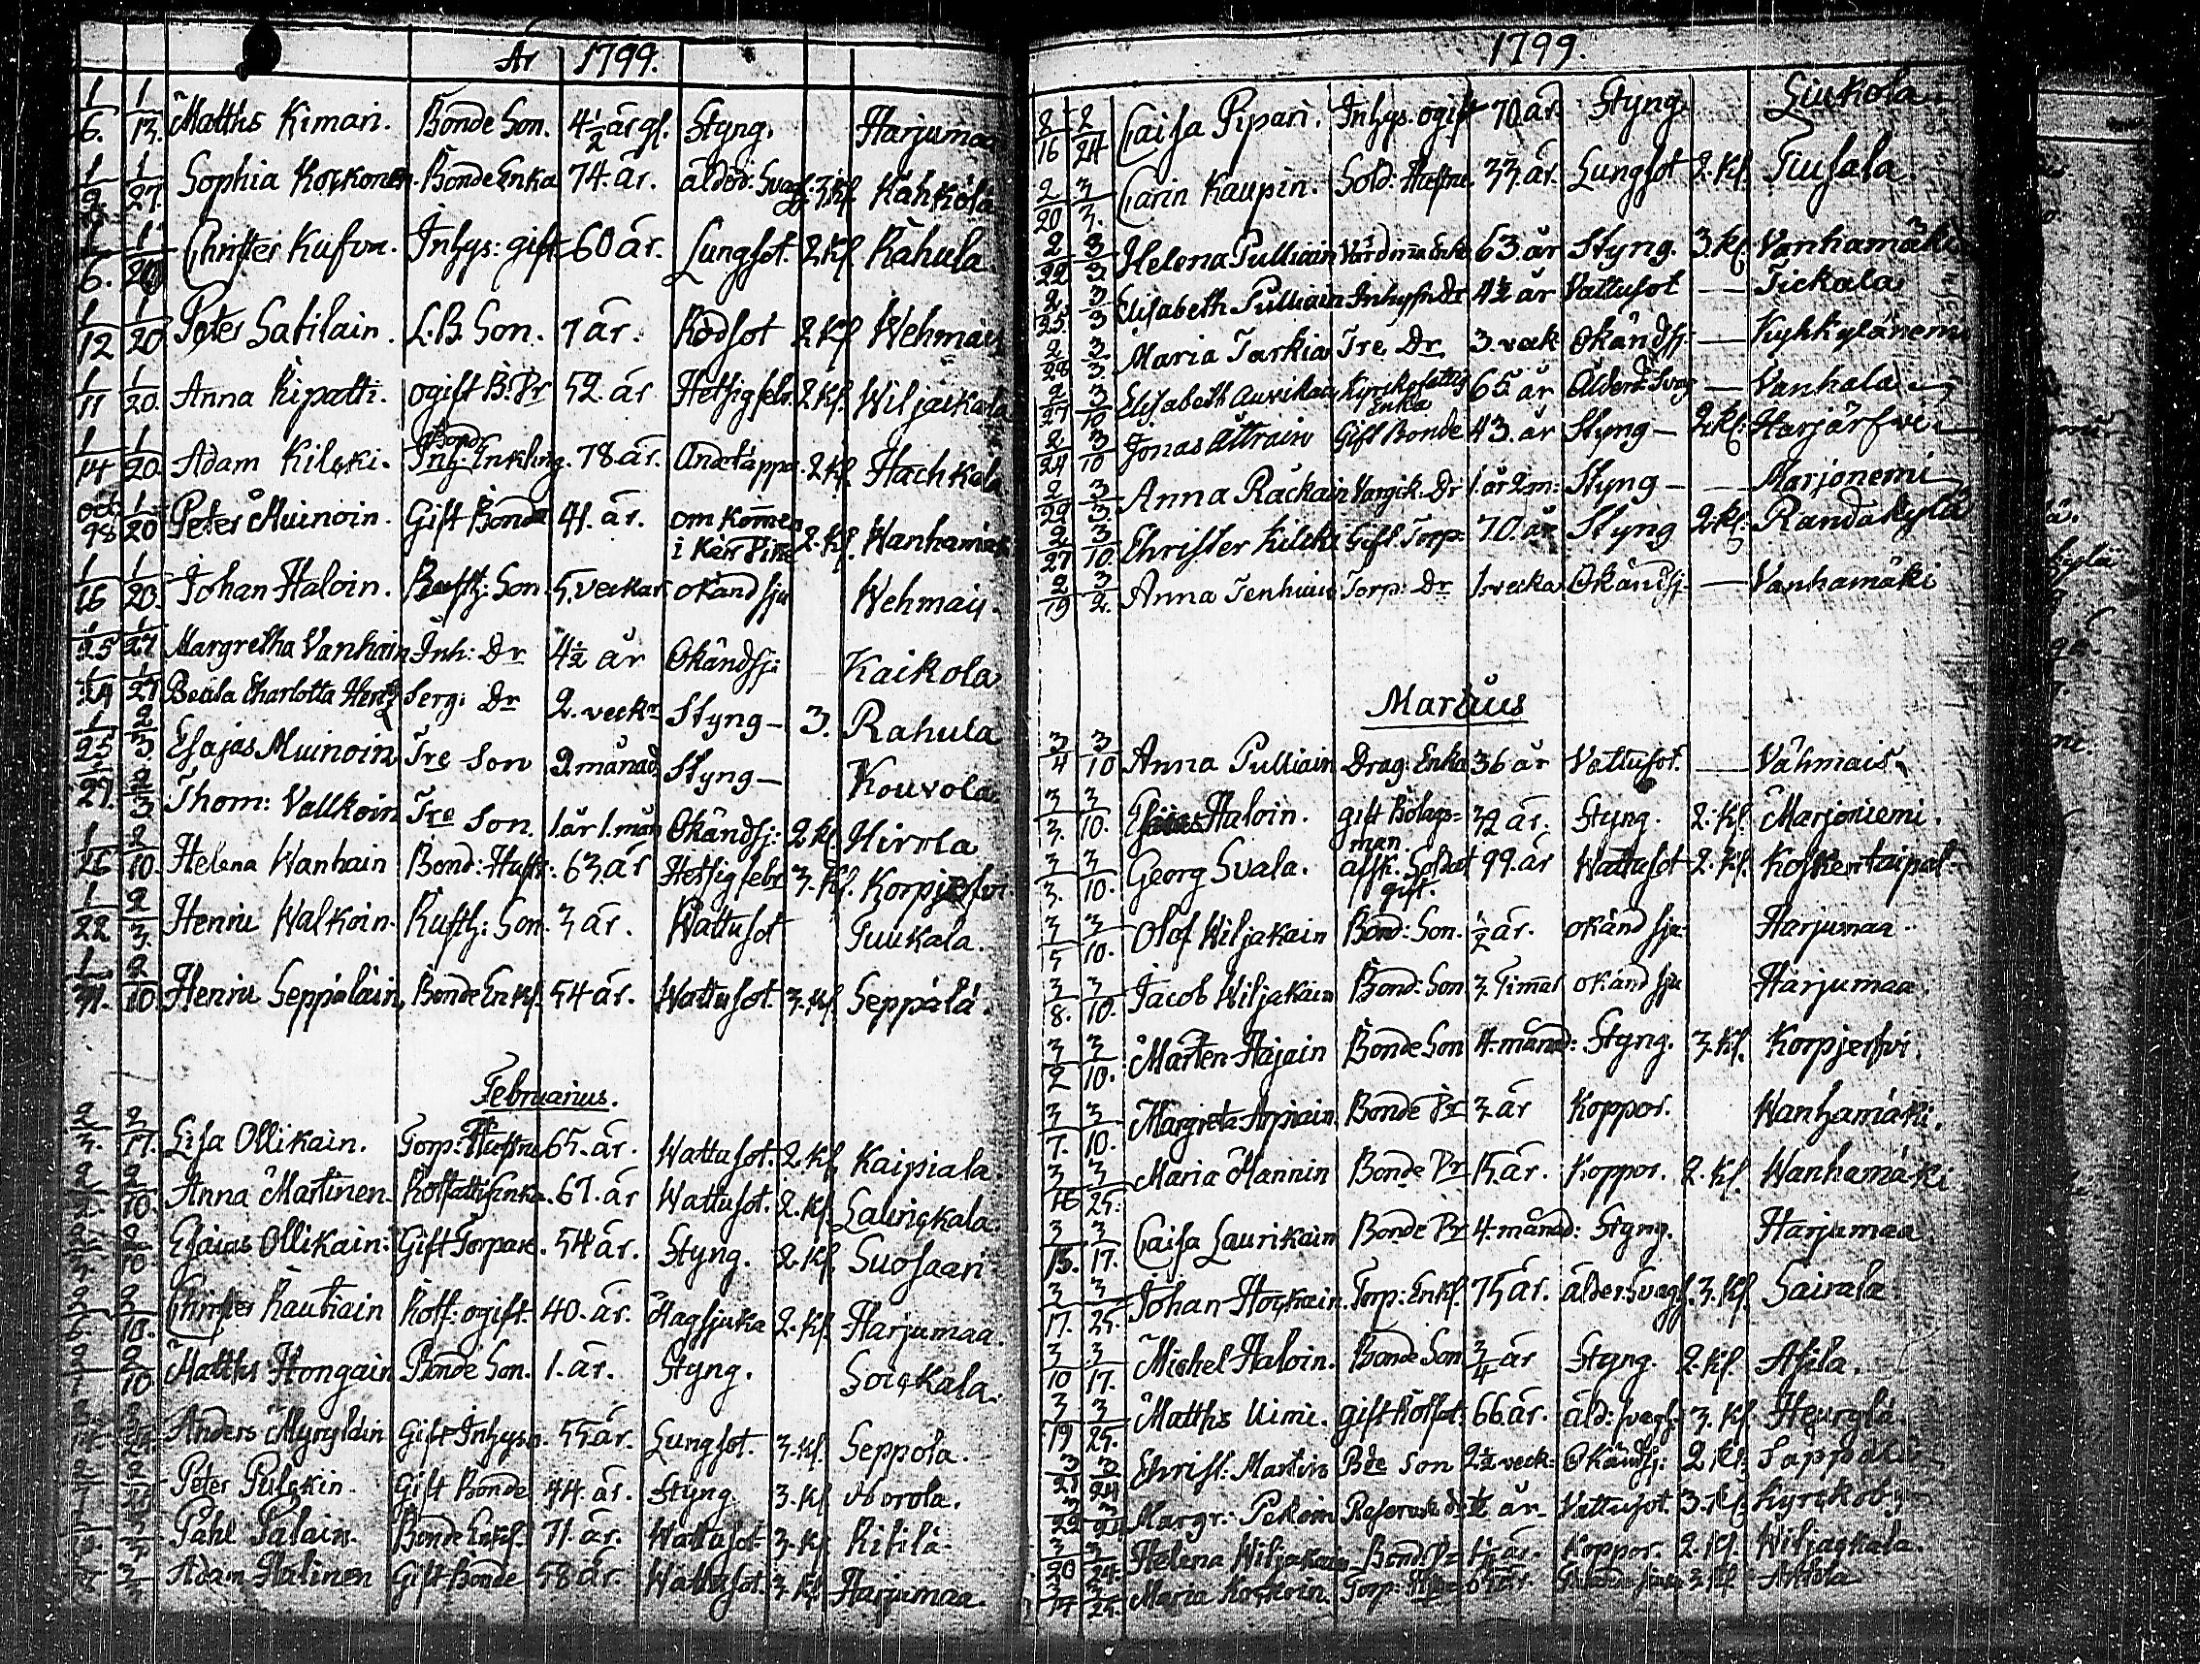 År 1799.
1/6. 1/13. Matths Kimari. Bonde Son. 4 1/2 år gl. Styng. Harjumaa
1/9. 1/27. Sophia Korkonen. Bonde Enka 74. år. ålderd: Svagh. 3. Kl. Kähkölä
1/6. 1/20 Christer Kufva. Inhys: gift 60 år. Lungsot. 2. Kl. Rahula.
1/12 1/20 Peter Satilain. L. B. Son. 7 år. Rödsot 2. Kl. Wehmais
1/11 1/20. Anna Ripatti. ogift B. Pr 52. år Hetsigfebr. 2. Kl. Wiljaikala
Bond
1/14 1/20. Adam Kilski. Inh: Enkling. 78. år. Andetäppa. 2. Kl. Hachkala
oct. 98 1/20 Peter Muinoin. Gift Bonde 41. år. omkommen
i Kärr 2. Kl. Wanhamäki
1/16 1/20. Johan Haloin. Rusth: Son. 5. veckar okänd sju Wehmais.
1/25 1/27 Margretha Vanhain Inh: Dr 4 1/2 år Okändsj: Kaikola
1/24 1/27 Beata Charlotta Serg: Dr 2. veckr Styng - 3. Rahula
1/25 2/3 Esajas Muinoin Tre Son 2 månad. Styng - Kouvola.
1/27. 2/3 Thom: Vallkoin Tre Son. 1. år 1. mån Okändsj: 2. Kl. Hirola
1/26 2/10. Helena Wanhain Bond: Hustr: 63. år Hetsigfebr 3. Kl. Korpjerfvi.
1/22 2/3. Henric Walkoin. Rusth: Son. 3 år. Wattusot Tuukala.
1/31. 2/10 Henric Seppäläin, Bonde Enkl. 54 år. Wattusot. 3. Kl. Seppälä.
Februarius.
2/3. 2/17. Lisa Ollikain. Torp: Hustru 65. år. Wattusot. 2. Kl. Kaipiala.
2/2. 2/10. Anna Martinen. Enka. 67. år Wattusot. 2. Kl. Laurickala.
2/10. Esaias Ollikain. Gift Torpare. 54 år. Styng. 2. Kl. Suosaari
2/6. 2/10. Christer Rautiain ogift. 40. år. Magsjuka 2. Kl. Harjumaa.
2/10 Matths Hongain Bonde Son. 1. år. Styng. Soickala.
Anders Myryläin Gift Inhys: 55 år. Lungsot. 3. Kl. Seppola.
Peter Pulckin. Gift Bonde 44. år. Styng 3. Kl. Norola.
Påhl Palain. Bonde Enkl. 71. år. Wattusot 3. Kl. Ritilä.
8 3/3 Adam Halinen Gift Bonde 58 år. Wattusot. 3. Kl. Harjumaa.
1799.
2/16 2/24 Caisa Pipari. Inhys. ogift 70. år. Styng. Liukola
2/20 3/3. Carin Kaupin. Sold: Hustru. 33. år. Lungsot 2. Kl. Tiusala
2/22 3/3 Helena Pulliain Enka 63. år Styng. 3. Kl. Vanhamäki
2/25. 3/3 Elisabeth Pulliain Inhysn Dr 4 1/2 år Vattusot — Tickala
2/28 3/3 Maria Tarkiai Tre Dr. 3. veck Okändsj — Kyhkylänemi
2/27 3/10 Elisabeth Auvikai Kyrckofattig
Enka 65 år Ålderd: Svag — Vanhala
2/24 3/10 Jonas Ättrain Gift Bonde 43. år Styng — 2. Kl. Harjärfvi
2/29 3/3 Anna Räckain Vargik. Dr 1. år 2 m: Styng — Marjonemi
2/27 3/10. Christer Kilcki Gift Torp: 70. år Styng 2. Kl. Randakylä
2/19 3/2. Anna Tenhuin Torp: Dr 1. vecka Okändsj — Vanhamäki
Martius
3/4 3/10 Anna Pulliain Drag. Enka 36 år Vattusot. — Vähmais
3/3. 3/10. Esaias Haloin. gift Bolags-
man 32 år. Styng. 2. Kl. Marjoniemi.
3/3. 3/10. Georg Svala. afsk. Soldat
gift. 99. år Wattusot 2. Kl. Koskentaipal
3/5 3/10. Olof Wiljakain Bond: Son. 1/2 år. okänd sju: Harjumaa.
3/8. 3/10. Jacob Wiljakain Bond: Son 3. Timar okänd sju Harjumaa.
3/2 3/10. Mårten Hajain Bonde Son 4. månad: Styng. 3. Kl. Korpjerfvi.
3/7. 3/10. Margreta Arpiain Bonde Pr 3. år Koppor. Wanhamäki.
3/16 3/25. Maria Mannin Bonde Pr 15. år. Koppor. 2. Kl. Wanhamäki
3/15. 3/17. Caisa Laurikain Bonde Pr 4. månad: Styng. Harjumaa
3/17. 3/25. Johan Hockain. Torp: Enkl. 75 år. ålder: Svagh. 3. Kl. Sairala
3/10 3/17. Michel Haloin. Bonde Son 3/4 år Styng. 2. Kl. Asila.
3/19 3/25. Matths Uimi. gift 66. år. åld: svagh: 3. Kl. Heurylä.
3/21 3/24 Christ: Martin Bde Son 2 1/2 veck: Okändsj: 2. Kl.
3/22 3/24 Margr: Pekoin 1/2 år Vattusot 3. Kl. Kyrckob:
3/20 3/25. Helena Wiljakain Bond: Pr 1 1/2 år. Koppor. 2. Kl. Wiljackala.
3/14 3/25. Maria Korkoin. Torp: 3. Kl.